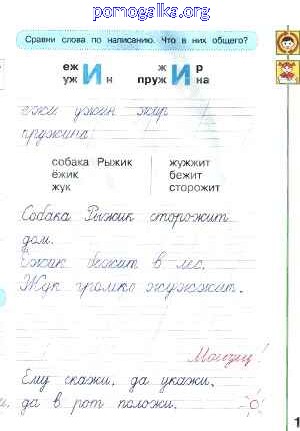 pomogalka.org
Сравни слова по написанию. Что в них общего?
еж ж р
уж И н пруж И на
ежи ужин жир
пружина
собака Рыжик жужжит
ёжик бежит
жук сторожит
Собака Рыжик сторожит
дом.
Ёжик бежит в лес.
Жук громко жужжит.
Молодец!
Ему скажи, да укажи,
да в рот положи.
1